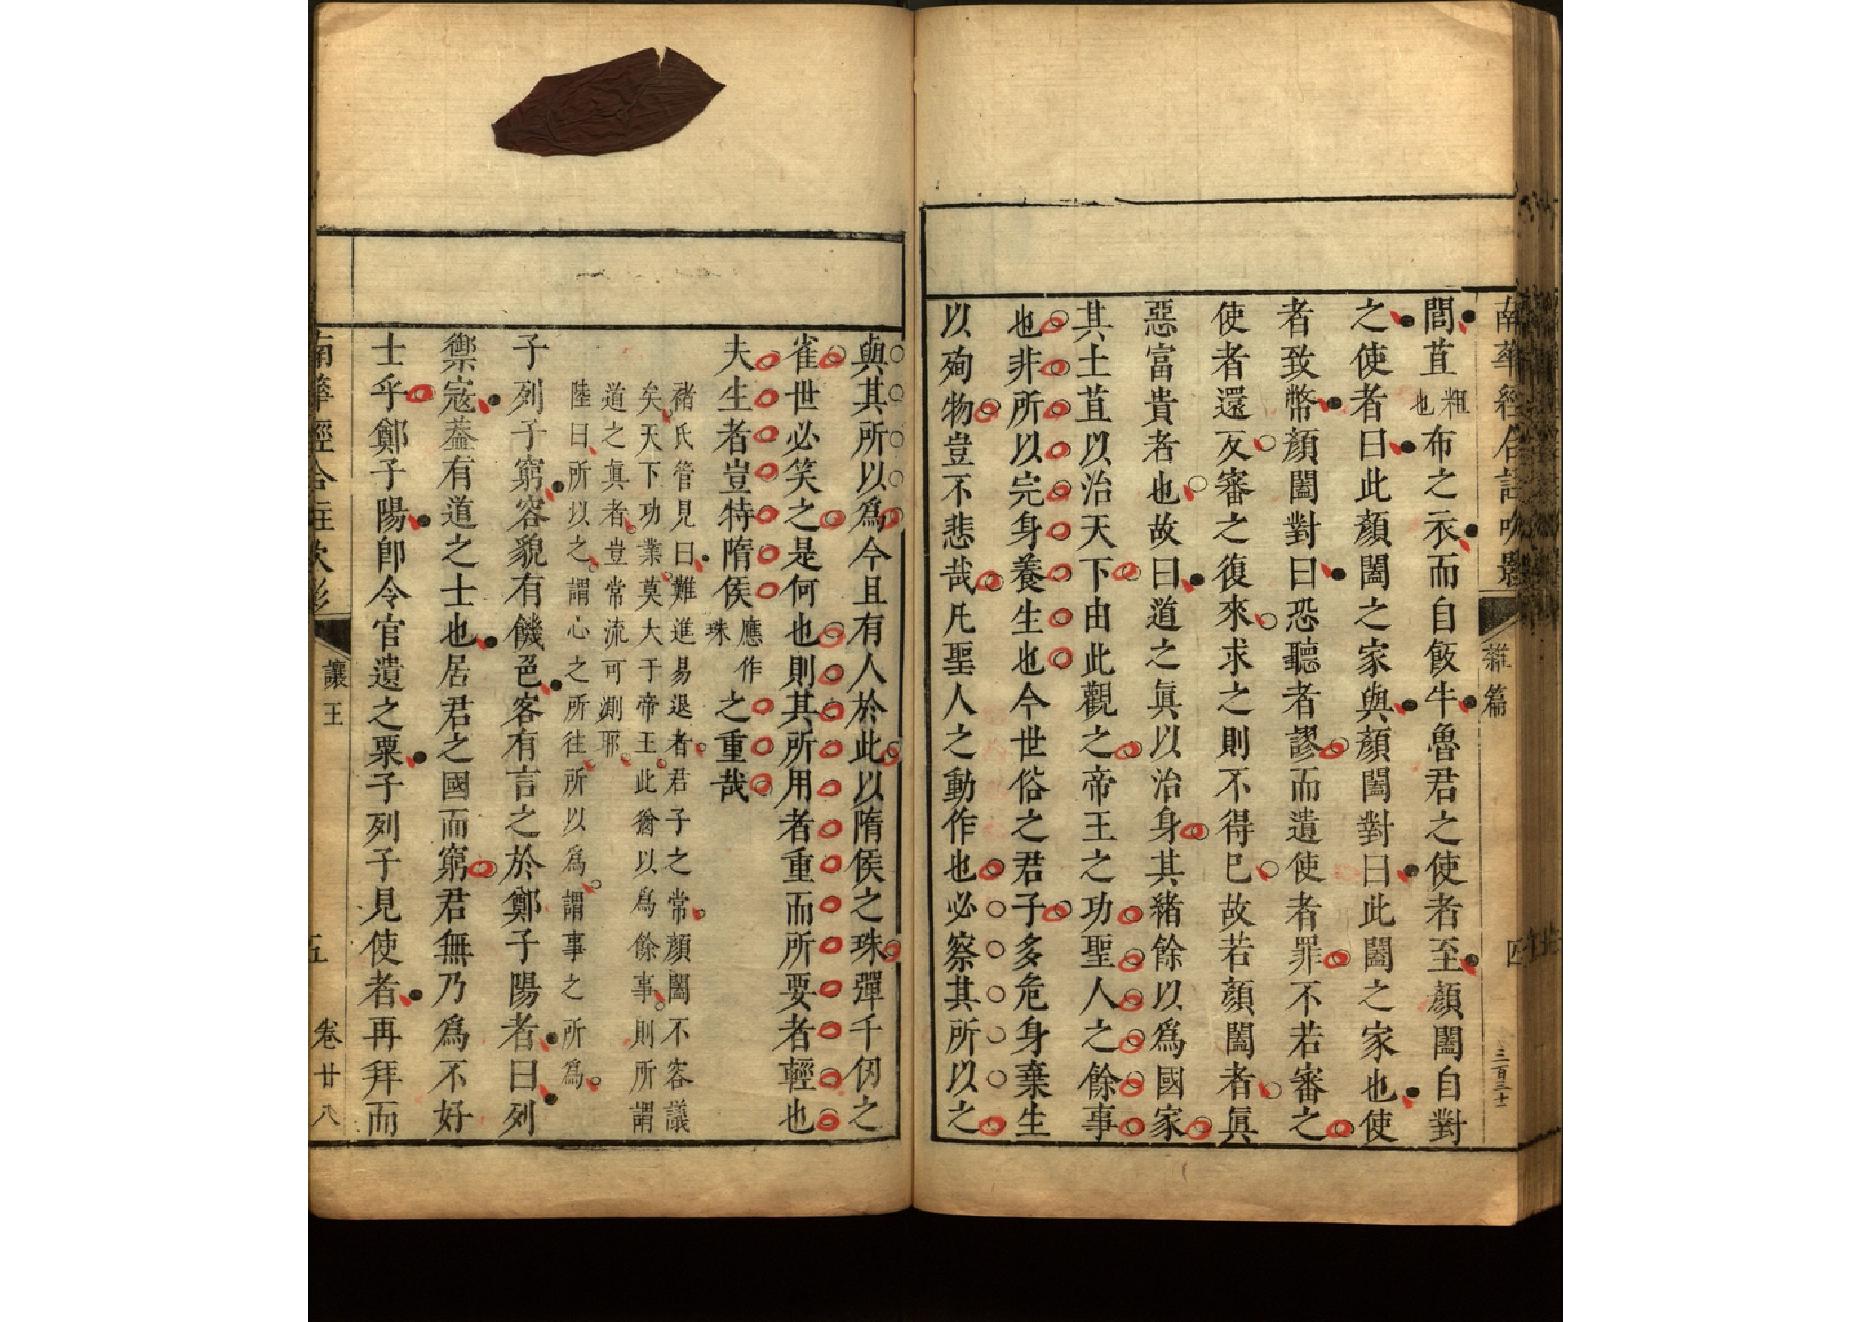 南華經合註吹影
雜篇
四
三百三十
閭苴粗也布之衣而自飯牛魯君之使者至顔闔自對
之使者曰此顔闔之家與顔闔對曰此闔之家也使
者致幣顔闔對曰恐聽者謬而遺使者罪不若審之
使者還反審之復來求之則不得已故若顔闔者眞
惡富貴者也故曰道之眞以治身其緒餘以爲國家
其土苴以治天下由此觀之帝王之功聖人之餘事
也非所以完身養生也今世俗之君子多危身棄生
以殉物豈不悲哉凡聖人之動作也必察其所以之
與其所以爲今且有人於此以隋侯之珠彈千仞之
雀世必笑之是何也則其所用者重而所要者輕也
夫生者豈特隋侯應作珠之重哉
褚氏管見曰難進易退者君子之常顔闔不容議
矣天下功業莫大于帝王此猶以爲餘事則所謂
道之眞者豈常流可測耶
陸曰所以之謂心之所往所以爲謂事之所爲
子列子窮容貌有饑色客有言之於鄭子陽者曰列
禦寇葢有道之士也居君之國而窮君無乃爲不好
士乎鄭子陽卽令官遺之粟子列子見使者再拜而
南華經合註吹影
讓王
五
卷廿八